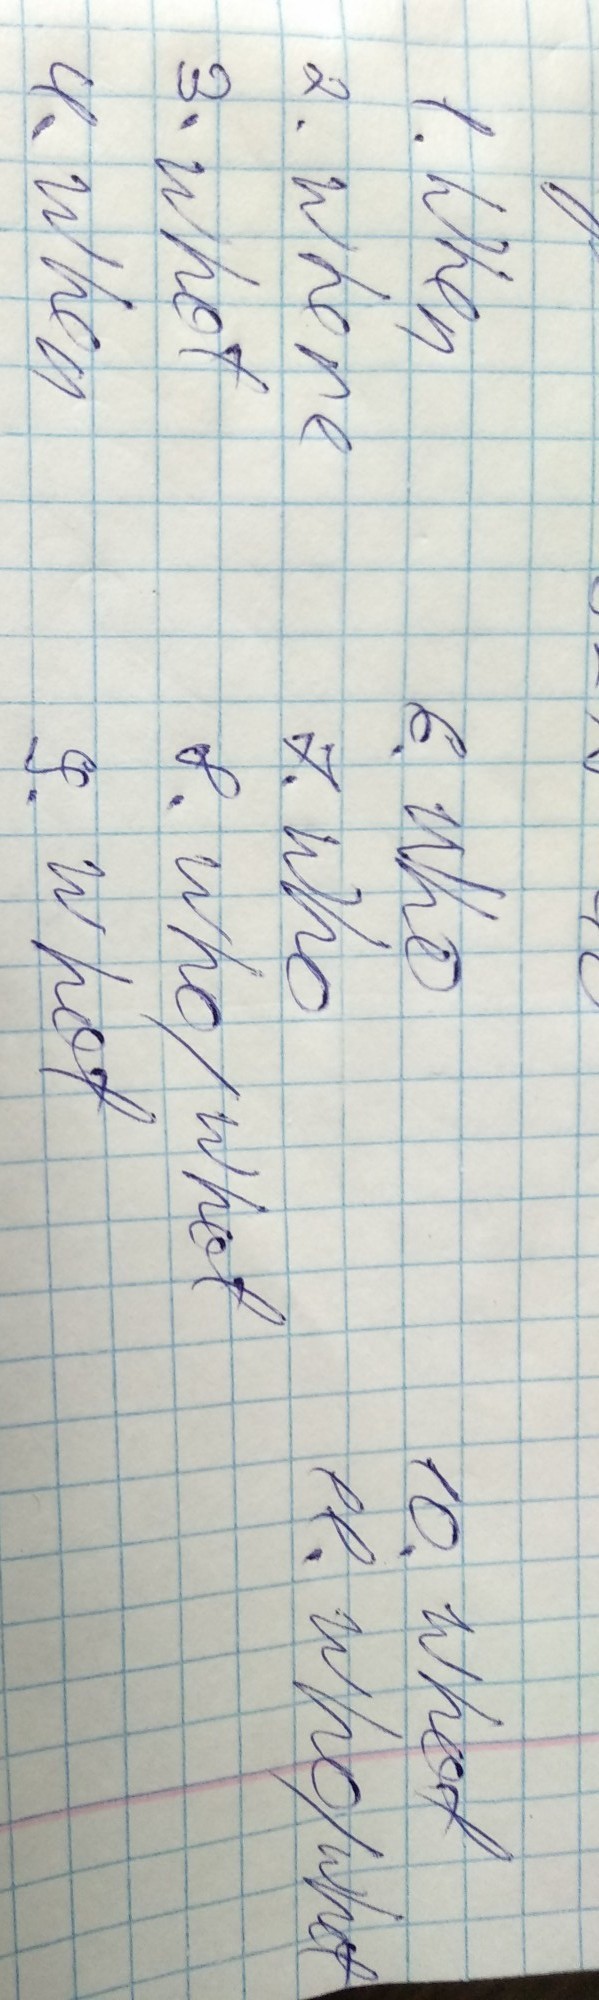 1. When
2. Where
3. What
4. When
6. Who
7. Who
8. Who/what
9. What
10. What
11. Who/what